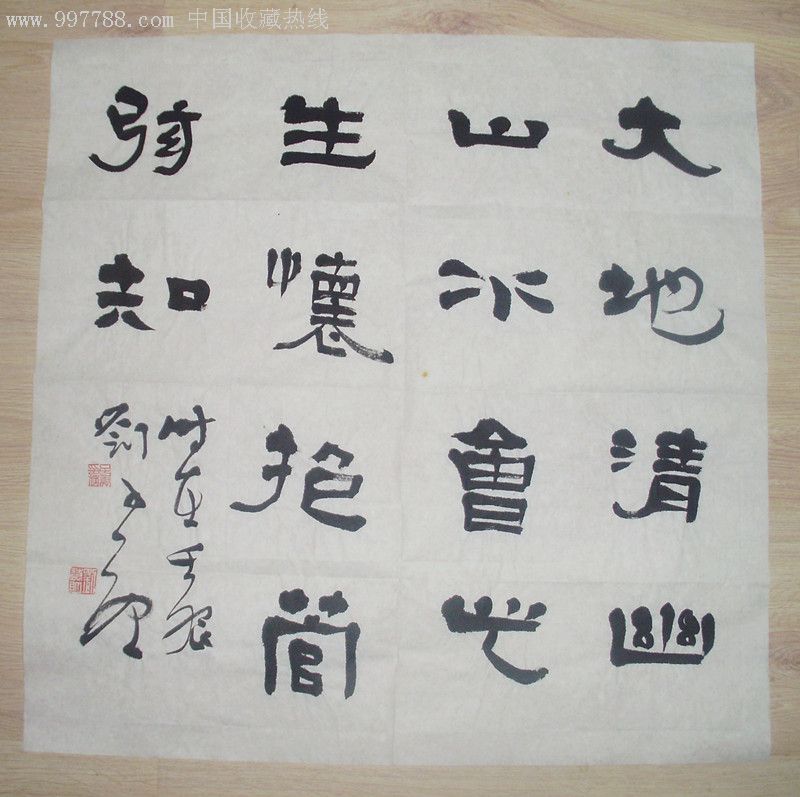 www.997788.com 中国收藏热线
大地清幽
山水會
生懷抱管
弦知
时在壬辰
劉